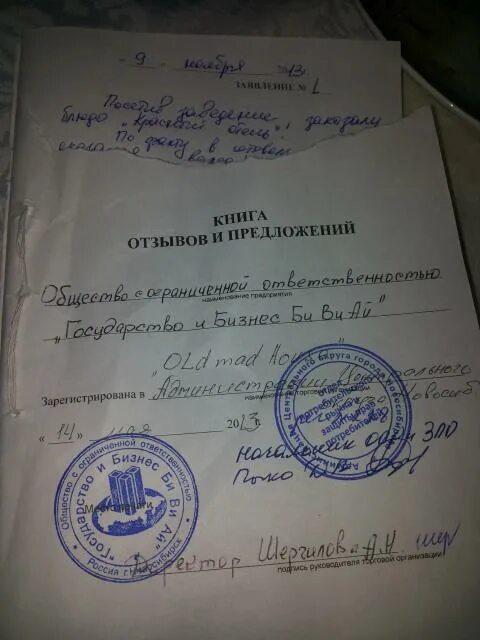 " 9 " ноября 2013г.
ЗАЯВЛЕНИЕ № 1
Посетив заведение
блюдо "Красный огонь", заказали
По факту в
КНИГА
ОТЗЫВОВ И ПРЕДЛОЖЕНИЙ
Общество с ограниченной ответственностью
наименование предприятия
"Государство и Бизнес Би Ви Ай"
"OLd mad
Зарегистрировано в Администрации Центрального
наименование
" 14 " мая 2013г.
начальник
Директор Шергилова А.Н.
подпись руководителя торговой организации
Общество с ограниченной ответственностью
"Государство и Бизнес Би Ви Ай"
Россия г.Новосибирск
Место печати
Центрального округа города Новосибирска
отдел
потребительского
рынка и
защиты прав
потребителей